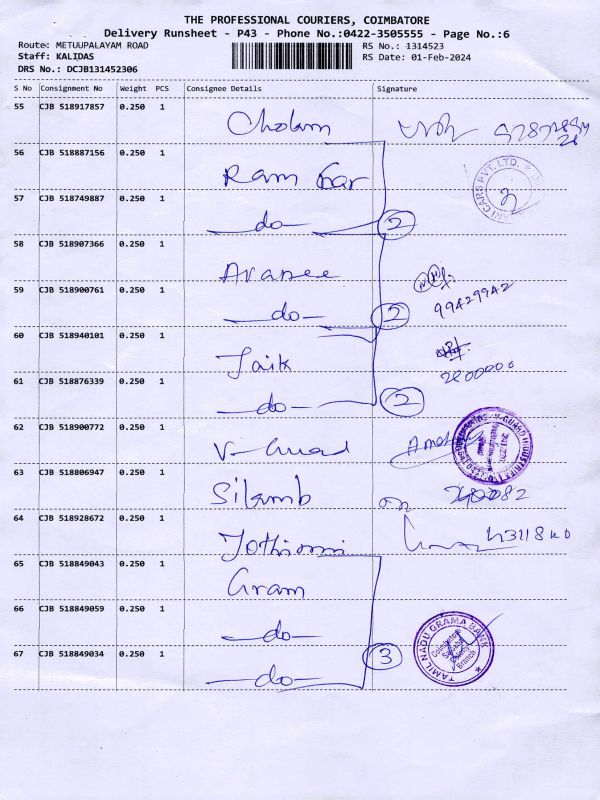 THE PROFESSIONAL COURIERS, COIMBATORE
Delivery Runsheet - P43 - Phone No.:0422-3505555 - Page No.:6
Route: METUUPALAYAM ROAD RS No.: 1314523
Staff: KALIDAS RS Date: 01-Feb-2024
DRS No.: DCJB131452306
S No Consignment No Weight PCS Consignee Details Signature
55 CJB 518917857 0.250 1 Cholam
56 CJB 518887156 0.250 1 Ram
57 CJB 518749887 0.250 1 —do— 2
58 CJB 518907366 0.250 1
59 CJB 518900761 0.250 1 —do— 2 99429942
60 CJB 518940101 0.250 1 Jaik
61 CJB 518876339 0.250 1 —do— 2 2800000
62 CJB 518900772 0.250 1 V-Guard
63 CJB 518806947 0.250 1 Silamb
64 CJB 518928672 0.250 1
65 CJB 518849043 0.250 1 Gram
66 CJB 518849059 0.250 1 —do—
67 CJB 518849034 0.250 1 —do— 3
TAMIL NADU GRAMA BANK
Coimbatore
Branch